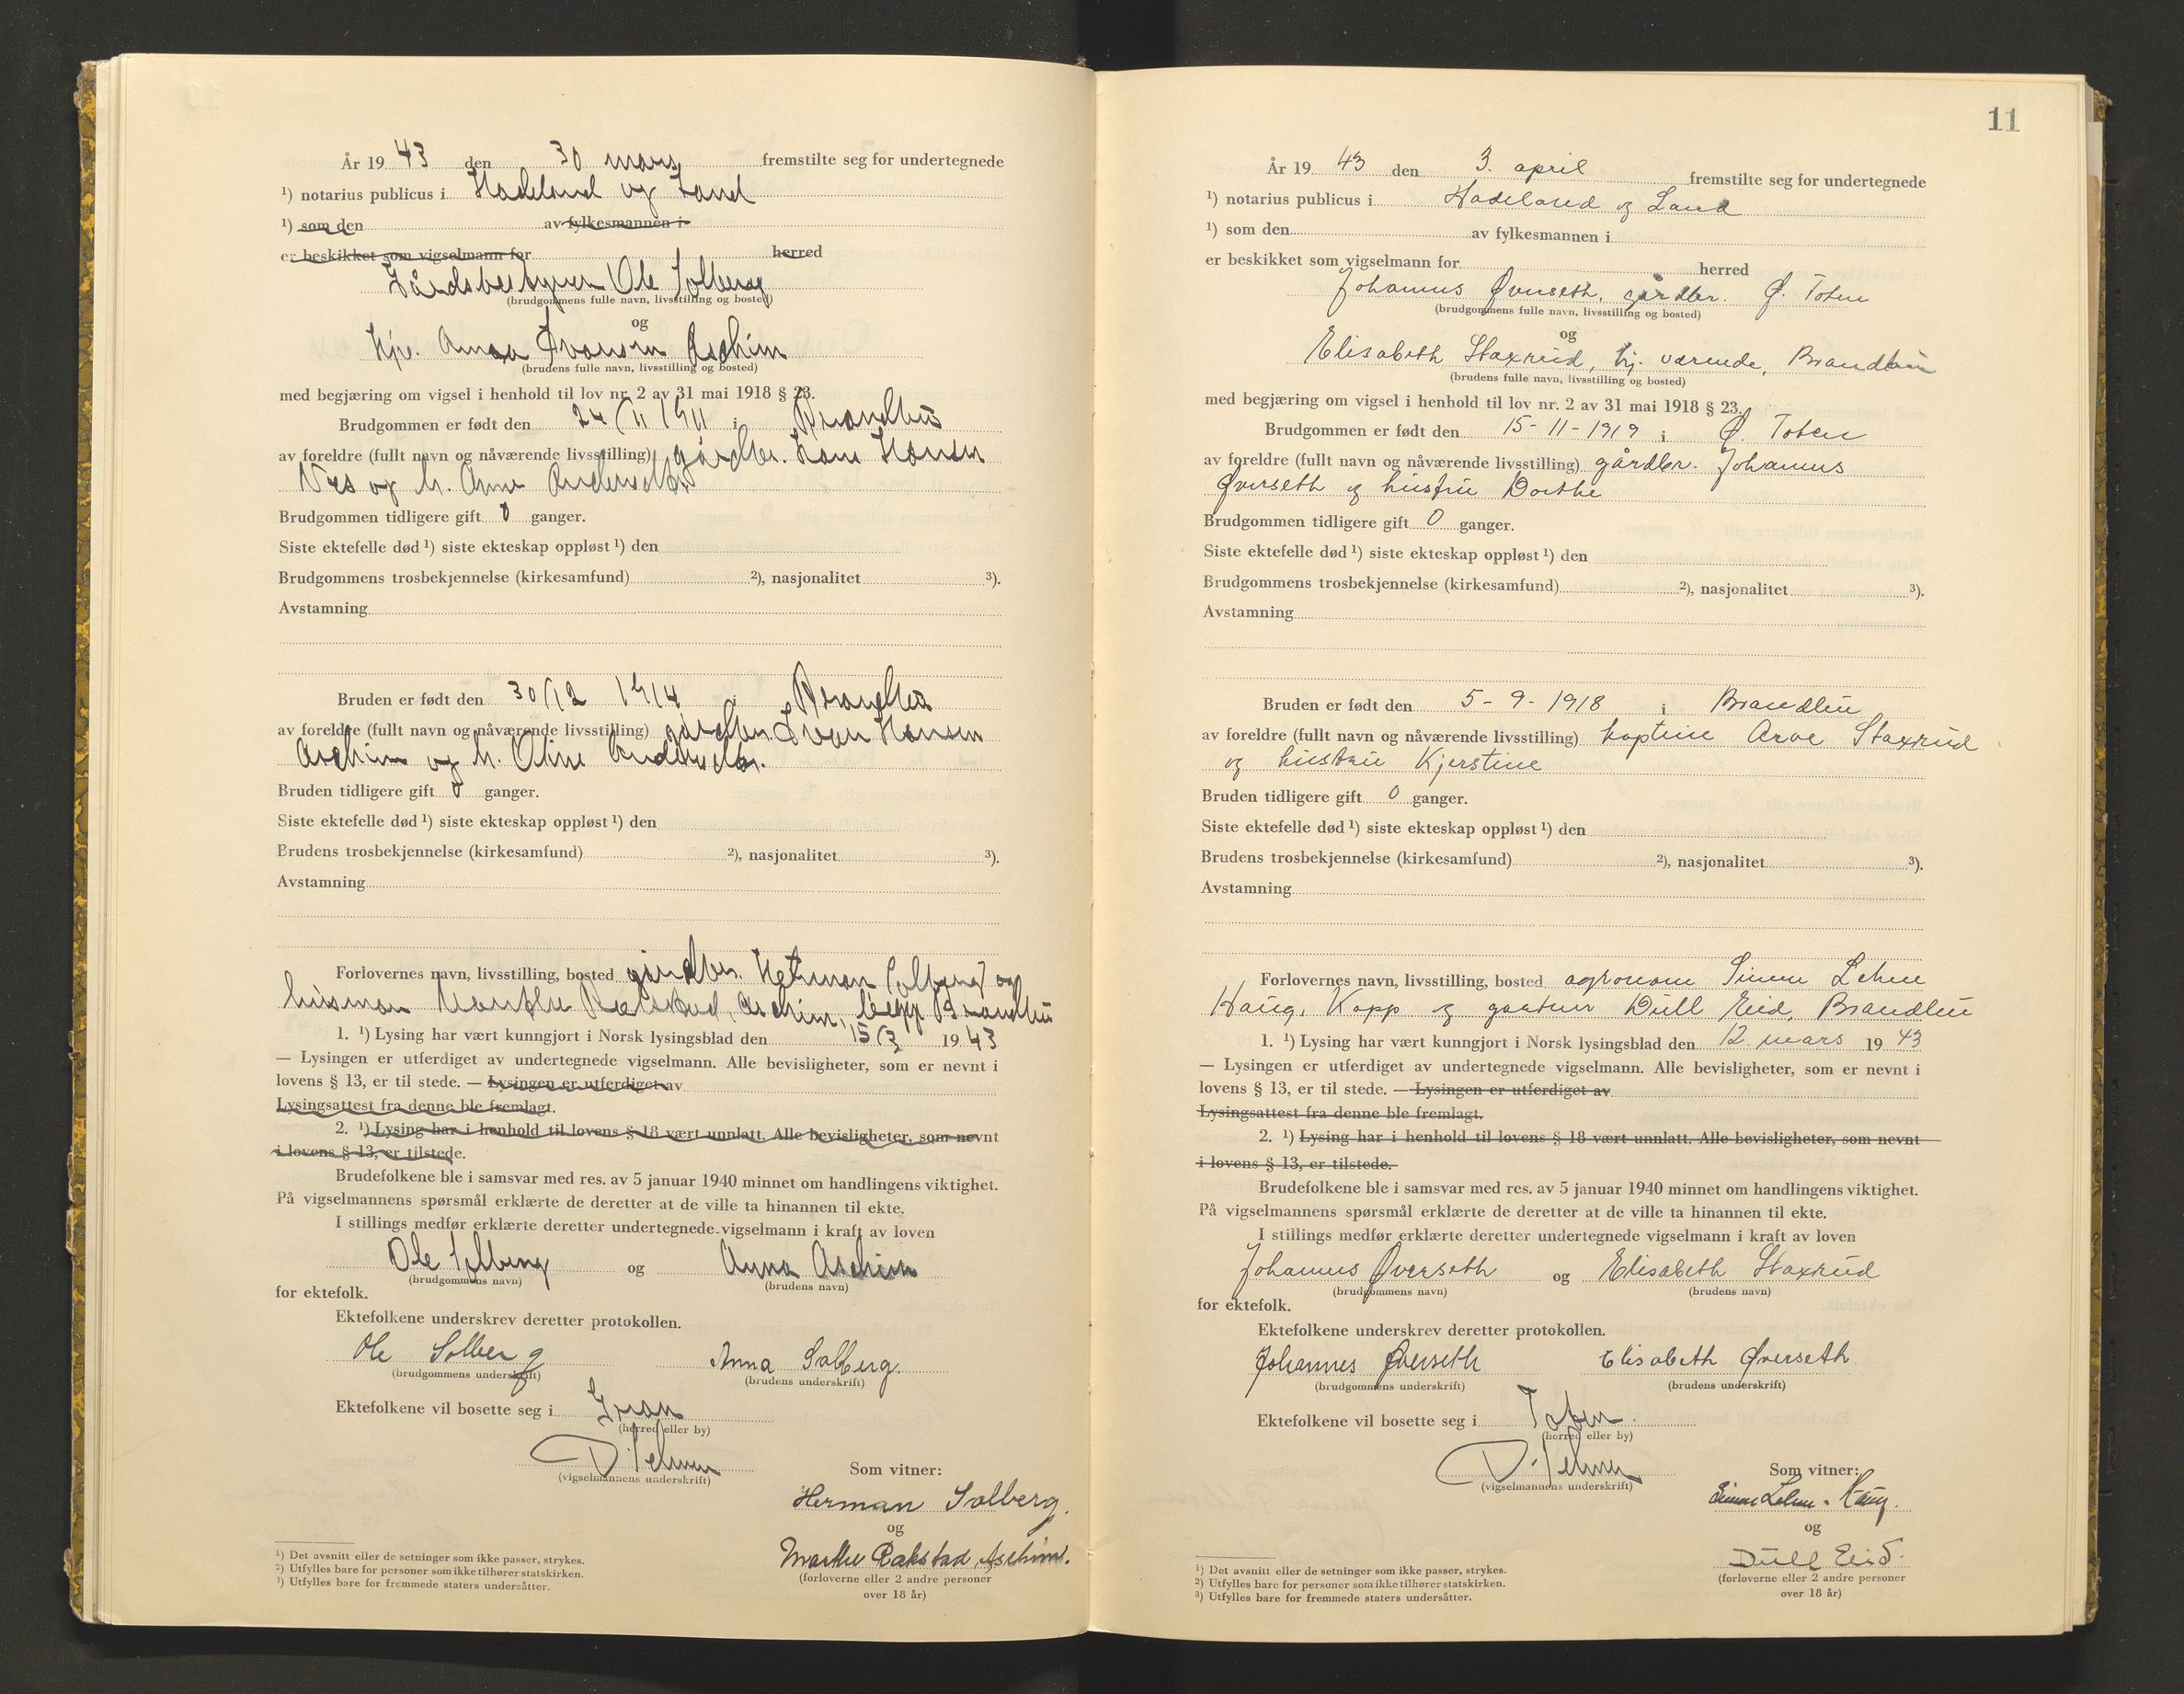 År 19 43 den 30 mars fremstilte seg for undertegnede
¹) notarius publicus i Hadeland og Land
¹) som den av fylkesmannen i
er beskikket som vigselmann for herred
Gårdsbestyrer Ole Solberg
(brudgommens fulle navn, livsstilling og bosted)
og
Anna Iversen Aschim
(brudens fulle navn, livsstilling og bosted)
med begjæring om vigsel i henhold til lov nr. 2 av 31 mai 1918 § 23.
Brudgommen er født den 24/11 1911 i Brandbu
av foreldre (fullt navn og nåværende livsstilling) gårdbr. Hans Hansen
og h. Anne Andersdtr.
Brudgommen tidligere gift 0 ganger.
Siste ektefelle død ¹) siste ekteskap oppløst ¹) den
Brudgommens trosbekjennelse (kirkesamfund) ²), nasjonalitet ³).
Avstamning
Bruden er født den 30/12 1914 i Brandbu
av foreldre (fullt navn og nåværende livsstilling) gårdbr. Iver Hansen
Aschim og h. Oline Andersdtr.
Bruden tidligere gift 0 ganger.
Siste ektefelle død ¹) siste ekteskap oppløst ¹) den
Brudens trosbekjennelse (kirkesamfund) ²), nasjonalitet ³).
Avstamning
Forlovernes navn, livsstilling, bosted gårdbr. Herman Solberg og
Marthe Rækstad, Aschim, begge Brandbu
1. ¹) Lysing har vært kunngjort i Norsk lysingsblad den 15/3 19 43
— Lysingen er utferdiget av undertegnede vigselmann. Alle bevisligheter, som er nevnt i
lovens § 13, er til stede. — Lysingen er utferdiget av
Lysingsattest fra denne ble fremlagt.
2. ¹) Lysing har i henhold til lovens § 18 vært unnlatt. Alle bevisligheter, som nevnt
i lovens § 13, er tilstede.
Brudefolkene ble i samsvar med res. av 5 januar 1940 minnet om handlingens viktighet.
På vigselmannens spørsmål erklærte de deretter at de ville ta hinannen til ekte.
I stillings medfør erklærte deretter undertegnede vigselmann i kraft av loven
Ole Solberg og Anna Aschim
(brudgommens navn) (brudens navn)
for ektefolk.
Ektefolkene underskrev deretter protokollen.
Ole Solberg Anna Solberg.
(brudgommens underskrift) (brudens underskrift)
Ektefolkene vil bosette seg i Gran
(herred eller by)
(vigselmannens underskrift)
Som vitner:
Herman Solberg.
og
Marthe Rækstad, Aschim.
(forloverne eller 2 andre personer
over 18 år)
¹) Det avsnitt eller de setninger som ikke passer, strykes.
²) Utfylles bare for personer som ikke tilhører statskirken.
³) Utfylles bare for fremmede staters undersåtter.
11
År 19 43 den 3. april fremstilte seg for undertegnede
¹) notarius publicus i Hadeland og Land
¹) som den av fylkesmannen i
er beskikket som vigselmann for herred
Johannes Øverseth, gårdbr. Ø. Toten
(brudgommens fulle navn, livsstilling og bosted)
og
Elisabeth Staxrud, hj. værende, Brandbu
(brudens fulle navn, livsstilling og bosted)
med begjæring om vigsel i henhold til lov nr. 2 av 31 mai 1918 § 23.
Brudgommen er født den 15-11-1919 i Ø. Toten
av foreldre (fullt navn og nåværende livsstilling) gårdbr. Johannes
Øverseth og hustru Dorthe
Brudgommen tidligere gift 0 ganger.
Siste ektefelle død ¹) siste ekteskap oppløst ¹) den
Brudgommens trosbekjennelse (kirkesamfund) ²), nasjonalitet ³).
Avstamning
Bruden er født den 5-9-1918 i Brandbu
av foreldre (fullt navn og nåværende livsstilling) kaptein Arve Staxrud
og hustru Kjerstine
Bruden tidligere gift 0 ganger.
Siste ektefelle død ¹) siste ekteskap oppløst ¹) den
Brudens trosbekjennelse (kirkesamfund) ²), nasjonalitet ³).
Avstamning
Forlovernes navn, livsstilling, bosted agronom Simen Lehne
Haug, Kapp og Düll Eid, Brandbu
1. ¹) Lysing har vært kunngjort i Norsk lysingsblad den 12. mars 19 43
— Lysingen er utferdiget av undertegnede vigselmann. Alle bevisligheter, som er nevnt i
lovens § 13, er til stede. — Lysingen er utferdiget av
Lysingsattest fra denne ble fremlagt.
2. ¹) Lysing har i henhold til lovens § 18 vært unnlatt. Alle bevisligheter, som nevnt
i lovens § 13, er tilstede.
Brudefolkene ble i samsvar med res. av 5 januar 1940 minnet om handlingens viktighet.
På vigselmannens spørsmål erklærte de deretter at de ville ta hinannen til ekte.
I stillings medfør erklærte deretter undertegnede vigselmann i kraft av loven
Johannes Øverseth og Elisabeth Staxrud
(brudgommens navn) (brudens navn)
for ektefolk.
Ektefolkene underskrev deretter protokollen.
Johannes Øverseth Elisabeth Øverseth.
(brudgommens underskrift) (brudens underskrift)
Ektefolkene vil bosette seg i Toten.
(herred eller by)
(vigselmannens underskrift)
Som vitner:
Simen Lehne-Haug.
og
Düll Eid.
(forloverne eller 2 andre personer
over 18 år)
¹) Det avsnitt eller de setninger som ikke passer, strykes.
²) Utfylles bare for personer som ikke tilhører statskirken.
³) Utfylles bare for fremmede staters undersåtter.